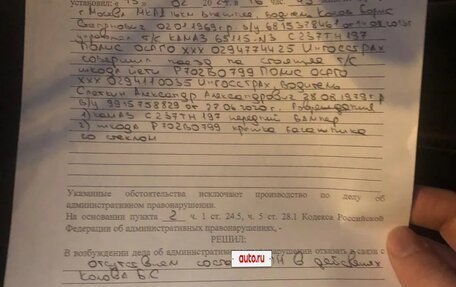 установил: « 15 » 02 20 24 г. в 16 час. 45
г Москва МКАД 16км внешняя, водитель Колов Борис
02.01.1969 г.р. В/у
управляя т/с КАМАЗ 65115-N3 С 237ТН 197
Полис ОСАГО ХХХ 0294774425 Ингосстрах
совершил наезд на стоящее т/с
шкода йети Р702ВО799 Полис ОСАГО
ХХХ 0294110035 Ингосстрах, водитель
Александр Александрович 28.08.1979 г.р
В/у 9915758829 от 27.06.2020 г. Повреждения
1) КАМАЗ С 237ТН 197 передний бампер
2) шкода Р702ВО799 крышка багажника
со стеклом
Указанные обстоятельства исключают производство по делу об
административном правонарушении.
На основании пункта 2 ч. 1 ст. 24.5, ч. 5 ст. 28.1 Кодекса Российской
Федерации об административных правонарушениях, -
РЕШИЛ:
В возбуждении дела об административном правонарушении отказать в связи с
отсутствием состава в действиях
auto.ru
Колова Б.С